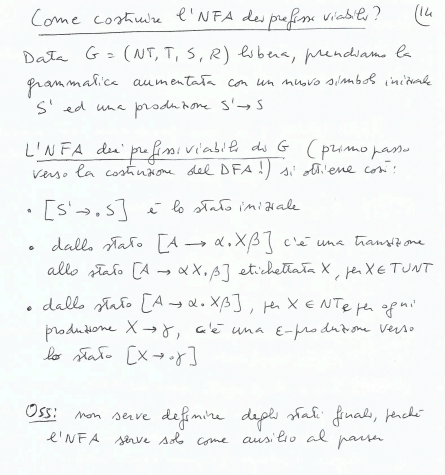 Come costruire l'NFA dei prefissi viabili? (14
Data G = (NT, T, S, R) libera, prendiamo la
grammatica aumentata con un nuovo simbolo iniziale
S' ed una produzione S' → S
L'NFA dei prefissi viabili di G (primo passo
verso la costruzione del DFA!) si ottiene così:
• [S' → .S] è lo stato iniziale
• dallo stato [A → α.Xβ] c'è una transizione
allo stato [A → αX.β] etichettata X, per X ∈ T∪NT
• dallo stato [A → α.Xβ], per X ∈ NT e per ogni
produzione X → γ, c'è una ε-produzione verso
lo stato [X → .γ]
Oss: non serve definire degli stati finali, perché
l'NFA serve solo come ausilio al parser